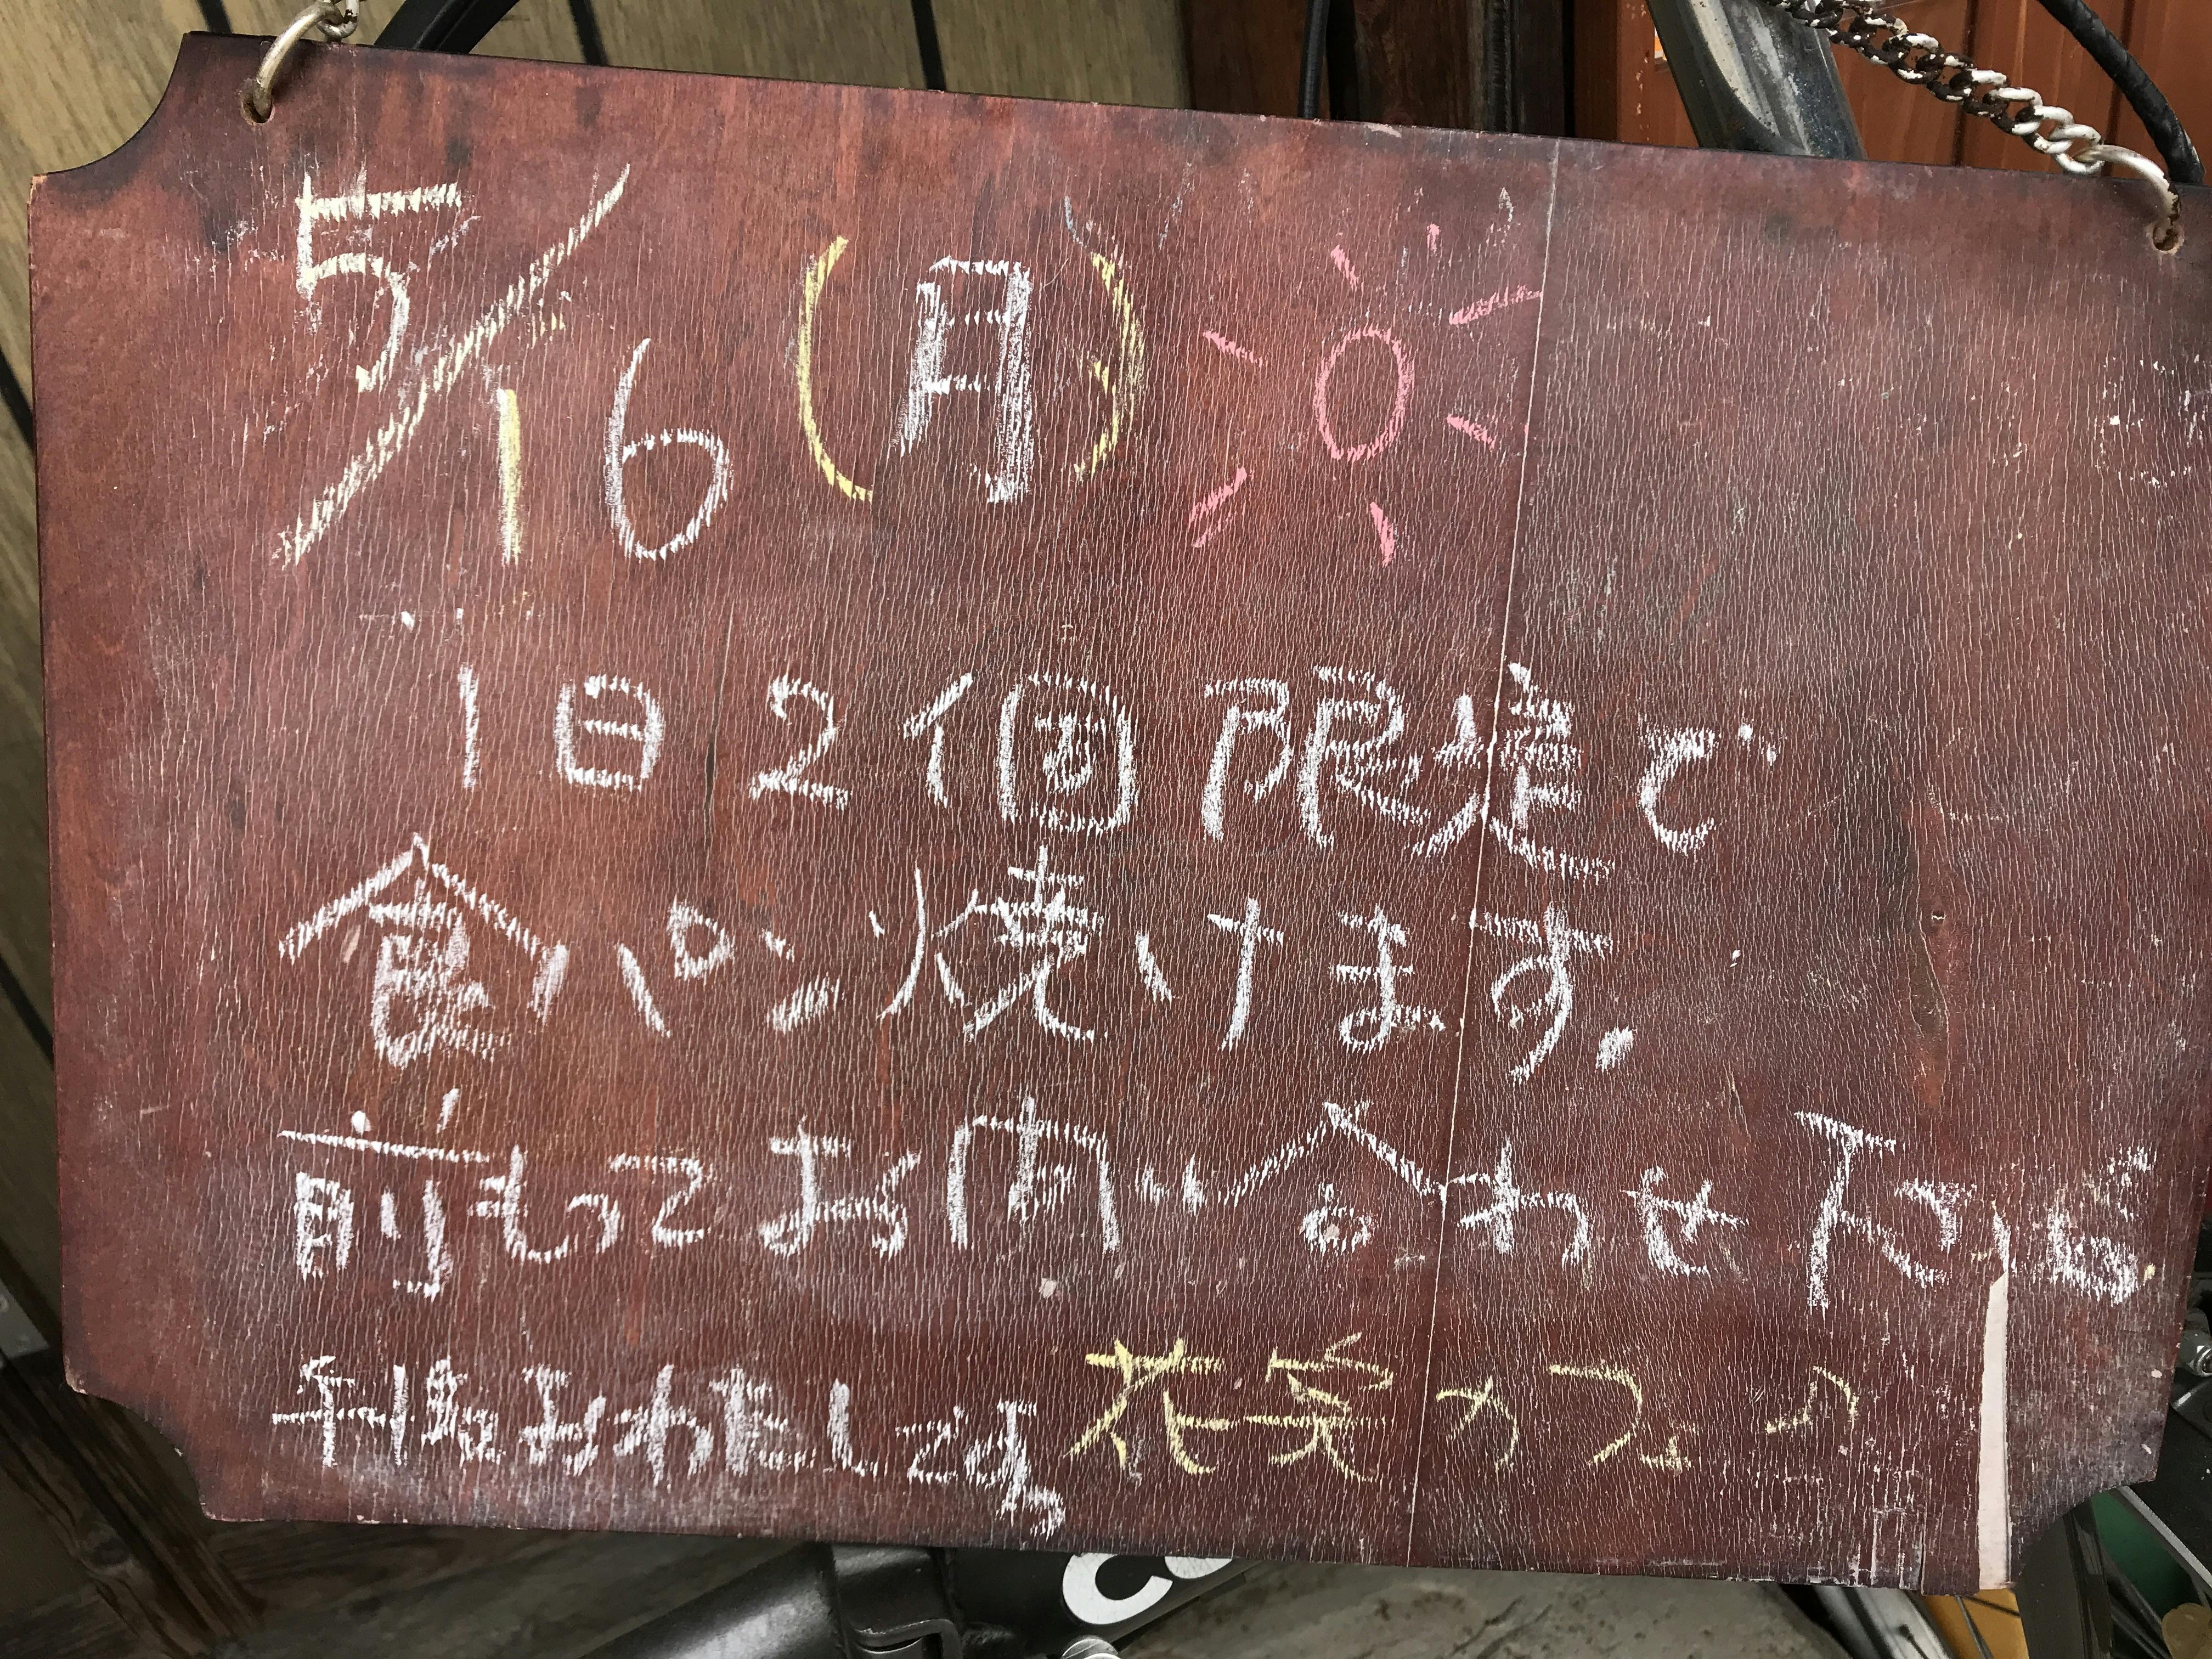 5/16 (月)
1日2個限定で
食パン焼けます。
前もってお問い合わせ下さい
午後おわたしです。 花笑カフェ♪